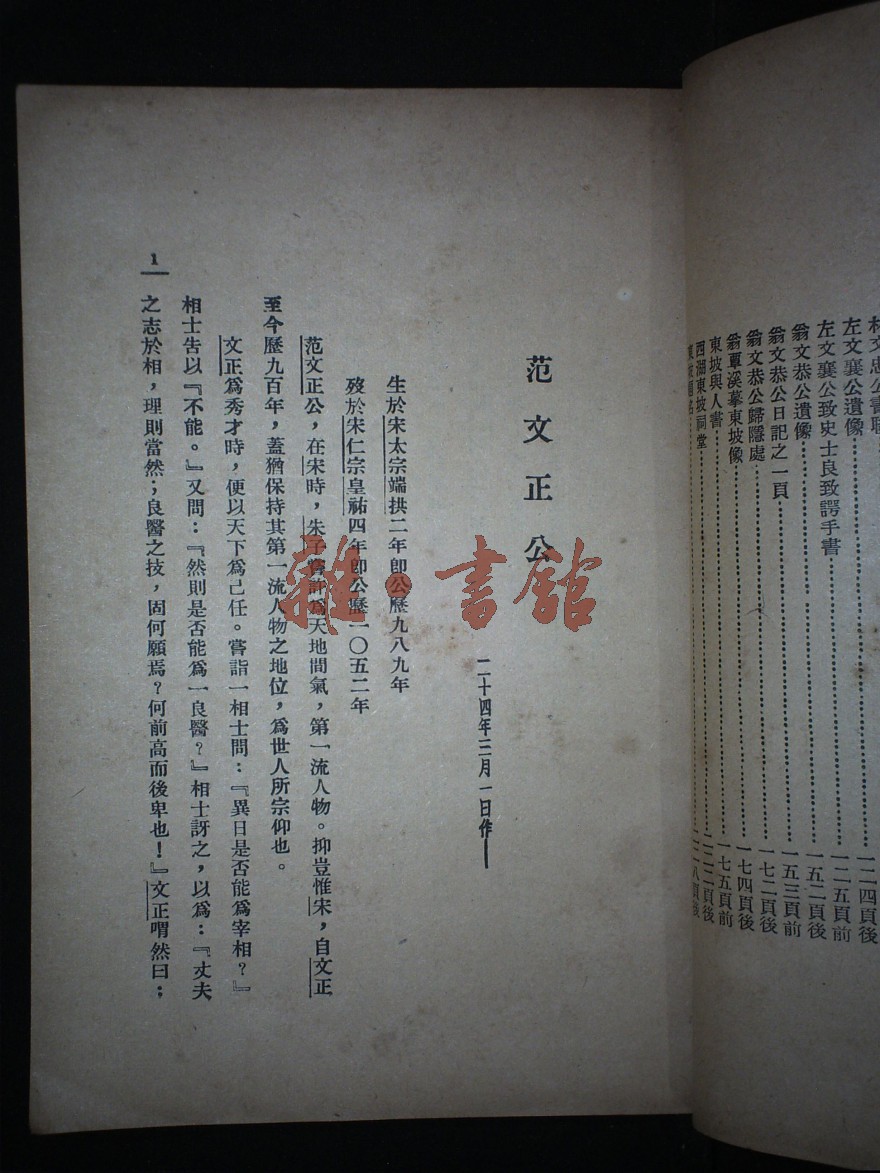 左文襄公遺像 一二四頁後
左文襄公致史士良致諤手書 一二五頁前
翁文恭公遺像 一五二頁後
翁文恭公日記之一頁 一五三頁前
翁文恭公歸隱處 一七二頁後
翁覃溪摹東坡像 一七四頁後
東坡與人書 一七五頁前
西湖東坡祠堂
范文正公
二十四年三月一日作
生於宋太宗端拱二年卽公歷九八九年
歿於宋仁宗皇祐四年卽公歷一〇五二年
范文正公,在宋時,朱子嘗許爲天地間氣,第一流人物。抑豈惟宋,自文正
至今歷九百年,蓋猶保持其第一流人物之地位,爲世人所宗仰也。
文正爲秀才時,便以天下爲己任。嘗詣一相士問:『異日是否能爲宰相?』
相士告以『不能。』又問:『然則是否能爲一良醫?』相士訝之,以爲:『丈夫
之志於相,理則當然;良醫之技,固何願焉?何前高而後卑也!』文正喟然曰;
1
雜·書館